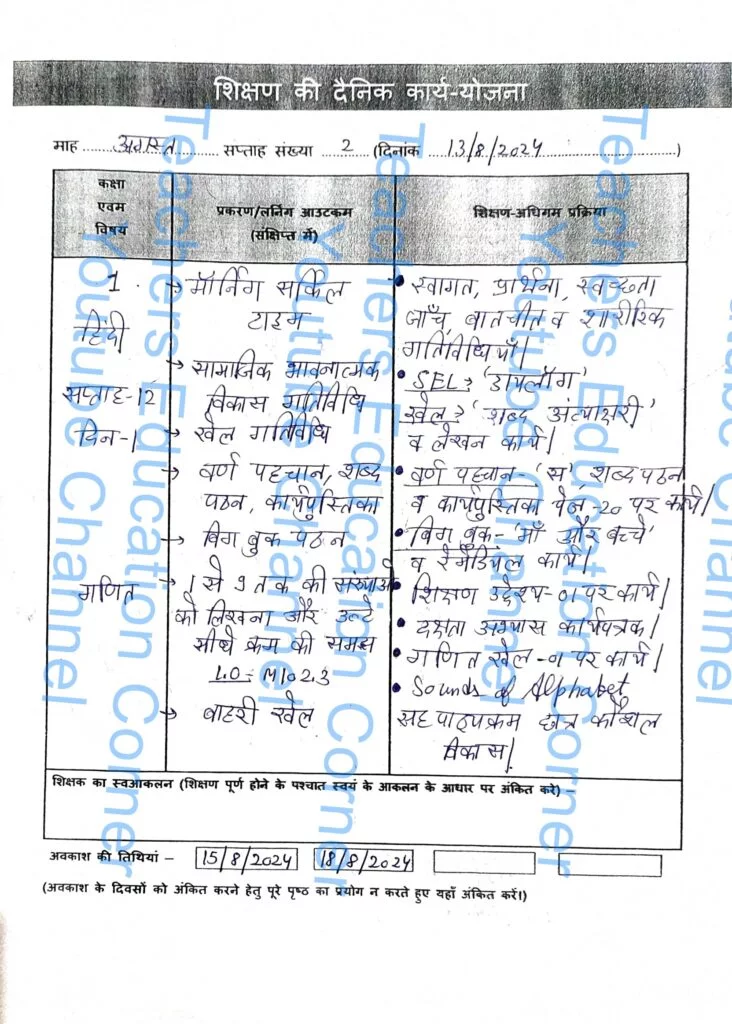 शिक्षण की दैनिक कार्य-योजना
माह ..... अगस्त ..... सप्ताह संख्या ... 2 ... (दिनांक ... 13/8/2024 ...)
कक्षा एवम विषय
प्रकरण/लर्निंग आउटकम (संक्षिप्त में)
शिक्षण-अधिगम प्रक्रिया
1
हिंदी
सप्ताह-12
दिन-1
गणित
→ मॉर्निंग सर्किल
टाइम
→ सामाजिक भावनात्मक
विकास गतिविधि
→ खेल गतिविधि
→ वर्ण पहचान, शब्द
पठन, कार्यपुस्तिका
→ बिग बुक पठन
→ 1 से 9 तक की संख्याओं
को लिखना और उल्टे
सीधे क्रम की समझ
L.O = M102.3
→ बाहरी खेल
• स्वागत, प्रार्थना, स्वच्छता
जाँच, बातचीत व शारीरिक
गतिविधियाँ।
• SEL: 'डायलॉग'
खेल: 'शब्द अंत्याक्षरी'
व लेखन कार्य।
• वर्ण पहचान - 'स', शब्द पठन
व कार्यपुस्तिका पेज-20 पर कार्य।
• बिग बुक- 'माँ और बच्चे'
व रेमेडियल कार्य।
• शिक्षण उद्देश्य-01 पर कार्य।
• दक्षता अभ्यास कार्यपत्रक।
• गणित खेल-01 पर कार्य।
• Sounds of Alphabet
सह पाठ्यक्रम छात्र कौशल
विकास।
शिक्षक का स्वआकलन (शिक्षण पूर्ण होने के पश्चात स्वयं के आकलन के आधार पर अंकित करे) –
अवकाश की तिथियां – 15/8/2024 18/8/2024
(अवकाश के दिवसों को अंकित करने हेतु पूरे पृष्ठ का प्रयोग न करते हुए यहाँ अंकित करें।)
Teachers Education Corner
Youtube Channel
Teachers Education Corner
Youtube Channel
Teachers Education Corner
Youtube Channel